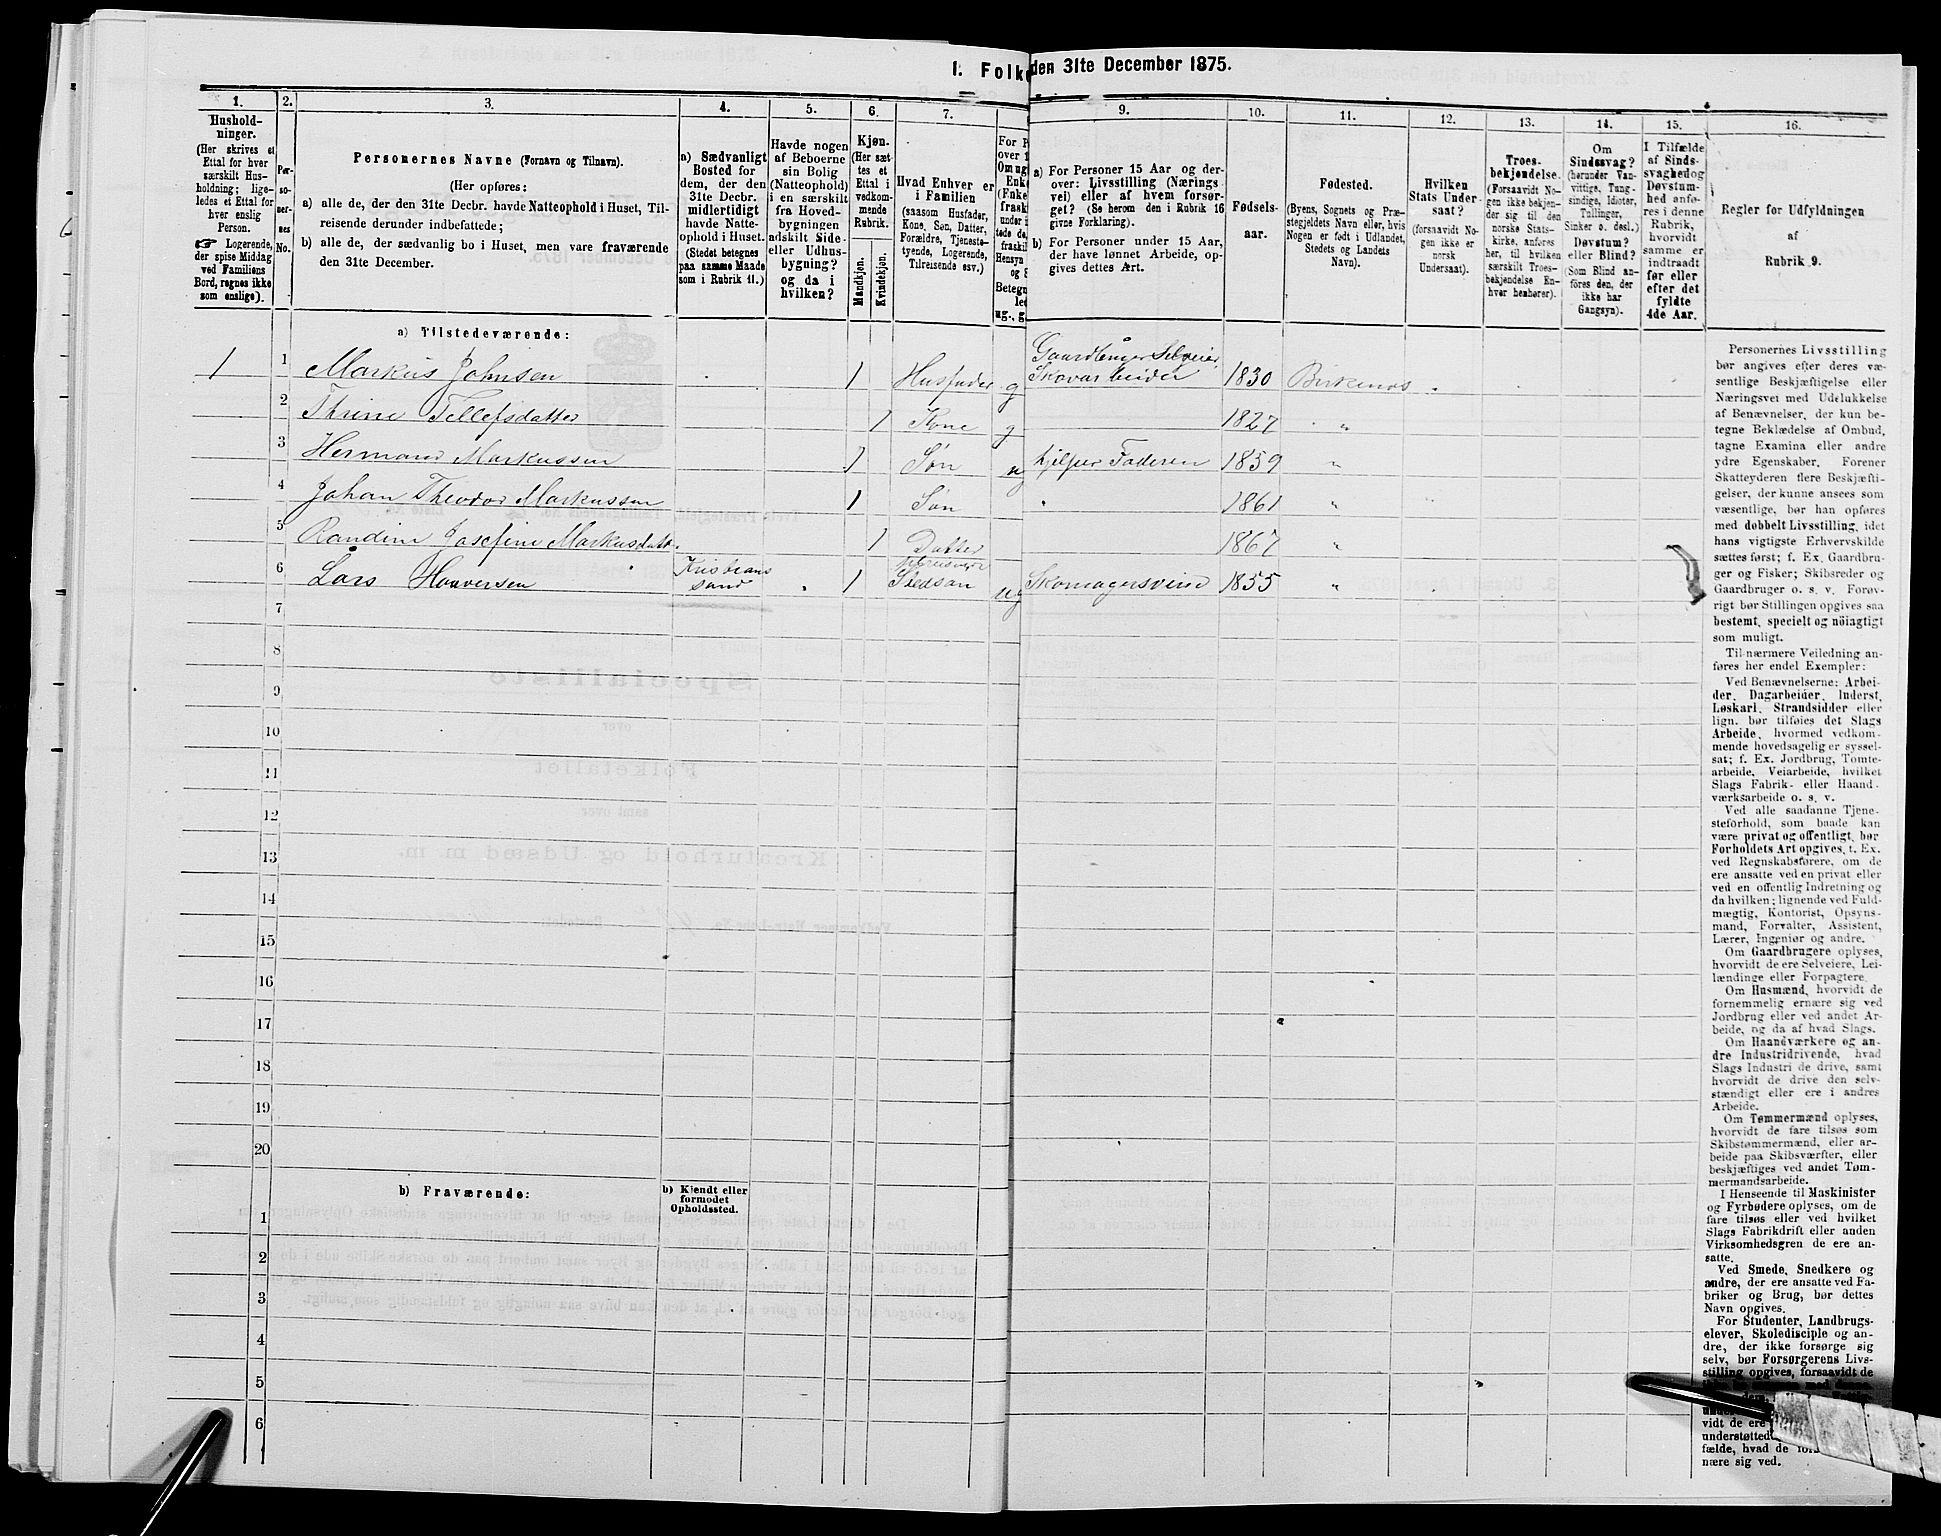 1. Folke
den 31te December 1875.
1.
Hushold-
ninger.
(Her skrives et
Ettal for hver
særskilt Hus-
holdning; lige-
ledes et Ettal for
hver enslig
Person.
☞ Logerende,
der spise Middag
ved Familiens
Bord, regnes ikke
som enslige).
2.
Per-
so-
ner-
nes
No.
3.
Personernes Navne (Fornavn og Tilnavn).
(Her opføres:
a) alle de, der den 31te Decbr. havde Natteophold i Huset, Til-
reisende derunder indbefattede;
b) alle de, der sædvanlig bo i Huset, men vare fraværende
den 31te December.
4.
a) Sædvanligt
Bosted for
dem, der den
31te Decbr.
midlertidigt
havde Natte-
ophold i Huset.
(Stedet betegnes
paa samme Maade
som i Rubrik 11.)
5.
Havde nogen
af Beboerne
sin Bolig
(Natteophold)
i en særskilt
fra Hoved-
bygningen
adskilt Side-
eller Udhus-
bygning?
og da i
hvilken?
6.
Kjøn.
(Her sæt-
tes et
Ettal i
vedkom-
mende
Rubrik.
Mandkjøn.
Kvindekjøn.
7.
Hvad Enhver er
i Familien
(saasom Husfader,
Kone, Søn, Datter,
Forældre, Tjeneste-
tyende, Logerende,
Tilreisende osv.)
For P
over 1
Om ug
Enke
(Enke
fraski
under i
tede de
fraskil
Hensyn
og S
Betegn
let
ug., g
9.
a) For Personer 15 Aar og der-
over: Livsstilling (Nærings
vei) eller af hvem forsør-
get? (Se herom den i Rubrik 16
givne Forklaring).
b) For Personer under 15 Aar,
der have lønnet Arbeide, op-
gives dettes Art.
10.
Fødsels-
aar.
11.
Fødested.
(Byens, Sognets og Præ-
stegjeldets Navn eller, hvis
Nogen er født i Udlandet,
Stedets og Landets
Navn).
12.
Hvilken
Stats Under-
saat?
(forsaavidt No-
gen ikke er
norsk
Undersaat).
13.
Troes-
bekjendelse.
(Forsaavidt No-
gen ikke bekjen-
der sig til den
norske Stats-
kirke, anføres
her, til hvilken
særskilt Troes-
bekjendelse En-
hver henhører).
14.
Om
Sindssvag?
(herunder Van-
vittige, Tung-
sindige, Idioter,
Tullinger,
Sinker o. desl.)
Døvstum?
eller Blind?
(Som Blind an-
føres den, der
ikke har
Gangsyn).
15.
I Tilfælde
af Sinds-
svaghed og
Døvstum-
hed anfø-
res i denne
Rubrik,
hvorvidt
samme er
indtraadt
før eller
efter det
fyldte
4de Aar.
16.
Regler for Udfyldningen
af
Rubrik 9.
a) Tilstedeværende:
1 1 Markus Johnsen 1 Husfader g Gaardbruger Selveier
Skovarbeider 1830 Birkenæs
2 Thrine Tellefsdatter 1 Kone g 1827 "
3 Hermand Markussen 1 Søn ug hjelper Faderen 1859 "
4 Johan Theodor Markussen 1 Søn 1861 "
5 Randine Josefine Markusdatt. 1 Datter 1867 "
6 Lars Haaversen Kristians
sand 1 Stedsøn ug Skomagersvend 1855 "
7
8
9
10
11
12
13
14
15
16
17
18
19
20
b) Fraværende:
b) Kjendt eller
formodet
Opholdssted.
1
2
3
4
5
6
Personernes Livsstilling
bør angives efter deres væ-
sentlige Beskjæftigelse eller
Næringsvei med Udelukkelse
af Benævnelser, der kun be-
tegne Beklædelse af Ombud,
tagne Examina eller andre
ydre Egenskaber. Forener
Skatteyderen flere Beskjæfti-
gelser, der kunne ansees som
væsentlige, bør han opføres
med dobbelt Livsstilling, idet
hans vigtigste Erhvervskilde
sættes først; f. Ex. Gaardbru-
ger og Fisker; Skibsreder og
Gaardbruger o. s. v. Forøv-
rigt bør Stillingen opgives saa
bestemt, specielt og nöiagtigt
som muligt.
Til nærmere Veiledning an-
føres her endel Exempler:
Ved Benævnelserne: Arbei-
der, Dagarbeider, Inderst,
Løskarl, Strandsidder eller
lign. bør tilføies det Slags
Arbeide, hvormed vedkom-
mende hovedsagelig er syssel-
sat; f. Ex. Jordbrug, Tomte-
arbeide, Veiarbeide, hvilket
Slags Fabrik- eller Haand
værksarbeide o. s. v.
Ved alle saadanne Tjene-
steforhold, som baade kan
være privat og offentligt, bør
Forholdets Art opgives, f. Ex.
ved Regnskabsførere, om de
ere ansatte ved en privat eller
ved en offentlig Indretning og
da hvilken; lignende ved Fuld-
mægtig, Kontorist, Opsyns-
mand, Forvalter, Assistent,
Lærer, Ingeniør og andre.
Om Gaardbrugere oplyses,
hvorvidt de ere Selveiere, Lei-
lændinge eller Forpagtere.
Om Husmænd, hvorvidt de
fornemmelig ernære sig ved
Jordbrug eller ved andet Ar-
beide, og da af hvad Slags.
Om Haandværkere og an-
dre Industridrivende, hvad
Slags Industri de drive, samt
hvorvidt de drive den selv-
stændigt eller ere i andres
Arbeide.
Om Tømmermænd oplyses,
hvorvidt de fare tilsøs som
Skibstømmermænd, eller ar-
beide paa Skibsværfter, eller
beskjæftiges ved andet Tøm-
mermandsarbeide.
I Henseende til Maskinister
og Fyrbødere oplyses, om de
fare tilsøs eller ved hvilket
Slags Fabrikdrift eller anden
Virksomhedsgren de ere an-
satte.
Ved Smede, Snedkere og
andre, der ere ansatte ved Fa-
briker og Brug, bør dettes
Navn opgives.
For Studenter, Landbrugs-
elever, Skoledisciple og an-
dre, der ikke forsørge sig
selv, bør Forsørgerens Livs-
stilling opgives, forsaavidt de
vidt de ere
understøtted
fælde, hvad de
nære sig ved.